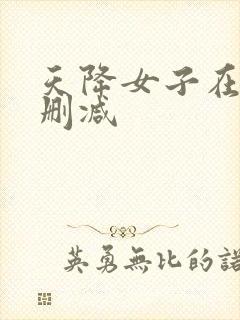 天降女子在
删减
英勇無比的諾